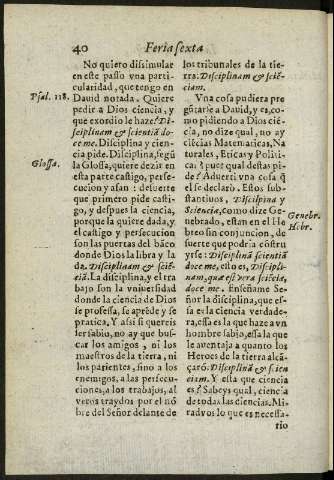 40 Feria sexta
No quiero dissimular
en este passo vna parti-
cularidad, que tengo en
Psal. 118.
Dauid notada. Quiere
pedir a Dios ciencia, y
que exordio le haze? Di-
sciplinam & scientiã do-
ce me. Disciplina y cien-
cia pide. Disciplina, segũ
Glossa.
la Glossa, quiere dezir en
esta parte castigo, perse-
cucion y afan: de suerte
que primero pide casti-
go, y despues la ciencia,
porque la quiere dada, y
el castigo y persecucion
son las puertas del bãco
donde Dios la libra y la
da. Disciplinam & sciẽ-
tiã. La disciplina, y el tra
bajo son la vniuersidad
donde la ciencia de Dios
se professa, se aprẽde y se
pratica. Y assi si quereis
ser sabio, no ay que bus-
car los amigos, ni los
maestros de la tierra, ni
los parientes, sino a los
enemigos, a las persecu-
ciones, a los trabajos, al
veros traydos por el nõ
bre del Señor delante de
los tribunales de la tie-
rra. Disciplinam & sciẽ-
ciam.
Vna cosa pudiera pre
gũtarle a Dauid, y es, co-
mo pidiendo a Dios ciẽ-
cia, no dize qual, no ay
ciẽcias Matematicas, Na
turales, Eticas y Politi-
cas? pues qual destas pi-
de? Aduerti vna cosa q̃
el se declarò. Estos sub-
stantiuos, Disciplina y
Sciencia, como dize Ge-
Genebr.
nebrado, estan en el He
Hebr.
breo sin conjuncion, de
suerte que podria cõstru
yrse: Disciplinã scientiã
doce me, esto es, Discipli-
nam, quæ est vera sciẽcia,
doce me. Enseñame Se-
ñor la disciplina, que es-
sa es la ciencia verdade-
ra, essa es la que haze a vn
hombre sabio, essa la que
le auentaja a quanto los
Heroes de la tierra alcã-
çarõ. Disciplinã & scien
ciam. Y esta que ciencia
es? Sabeys qual, ciencia
de todas las ciencias. Mi-
rad vos lo que es necessa-
rio